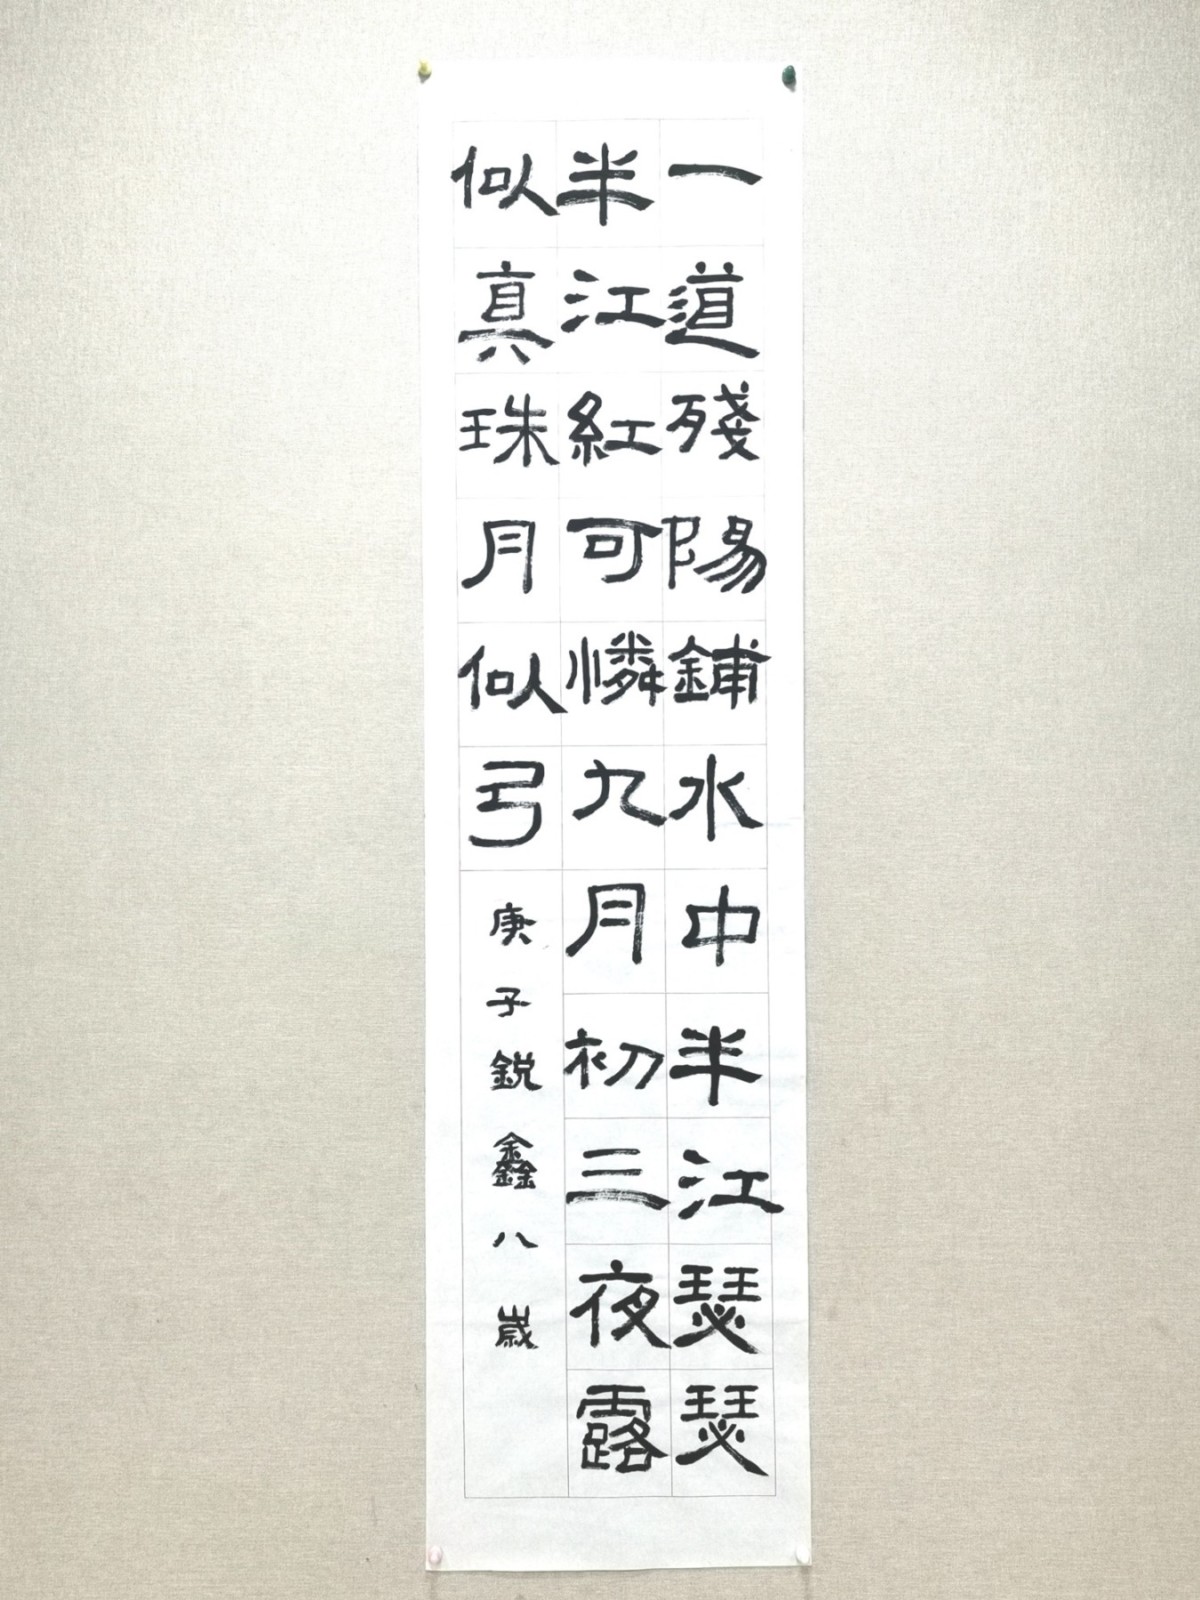 一道殘陽鋪水中半江瑟瑟
半江紅可憐九月初三夜露
似真珠月似弓
庚子鋭鑫八歲